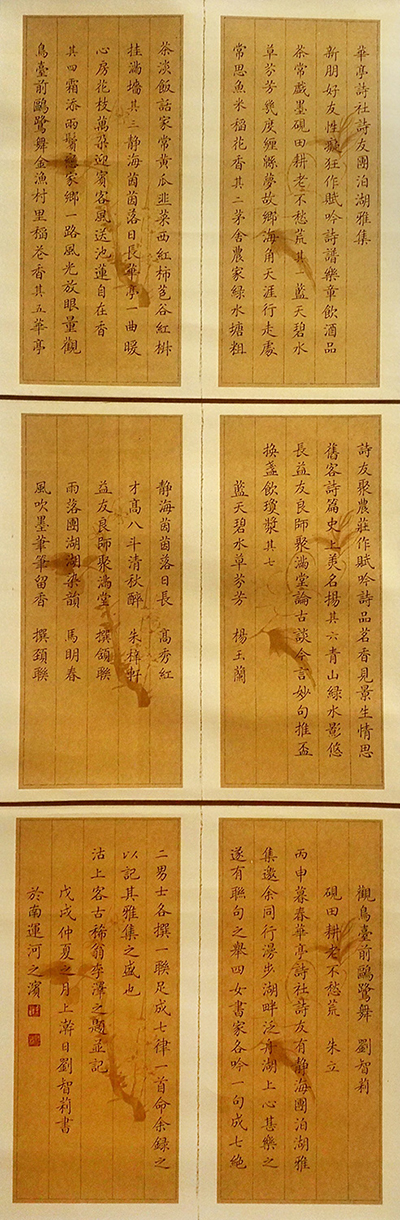 華亭詩社詩友團泊湖雅集
新朋好友性癡狂作賦吟詩譜樂章飲酒品
茶常戲墨硯田耕老不愁荒其一藍天碧水
草芬芳幾度纏綿夢故鄉海角天涯行走處
常思魚米稻花香其二茅舍農家綠水塘粗
茶淡飯話家常黄瓜韭菜西紅柿苞谷紅椒
挂滿墻其三静海茵茵落日長華亭一曲暖
心房花枝萬朶迎賓客風送池蓮自在香
其四霜添雨鬢家鄉一路風光放眼量觀
鳥臺前鷗鷺舞金漁村里稻花香其五華亭
詩友聚農莊作賦吟詩品茗香見景生情思
舊客詩篇史上美名揚其六青山綠水影悠
長益友良師聚滿堂論古談今言妙句推盃
換盞飲瓊漿其七
藍天碧水草芬芳 楊玉蘭
静海茵茵落日長 髙秀紅
才髙八斗清秋醉 朱梓軒
益友良師聚滿堂 撰頷聯
雨落團湖湖染韻 馬明春
風吹墨筆筆留香 撰頸聯
觀鳥臺前鷗鷺舞 劉智莉
硯田耕老不愁荒 朱立
丙申暮春華亭詩社詩友有静海團泊湖雅
集邀余同行湯步湖畔泛舟湖上心甚樂之
遂有聯句之舉四女書家各吟一句成七絶
二男士各撰一聯足成七律一首命余録之
以記其雅集之盛也
沽上客古稀翁李澤之題並記
戊戌仲夏之月上澣日劉智莉書
於南運河之濱